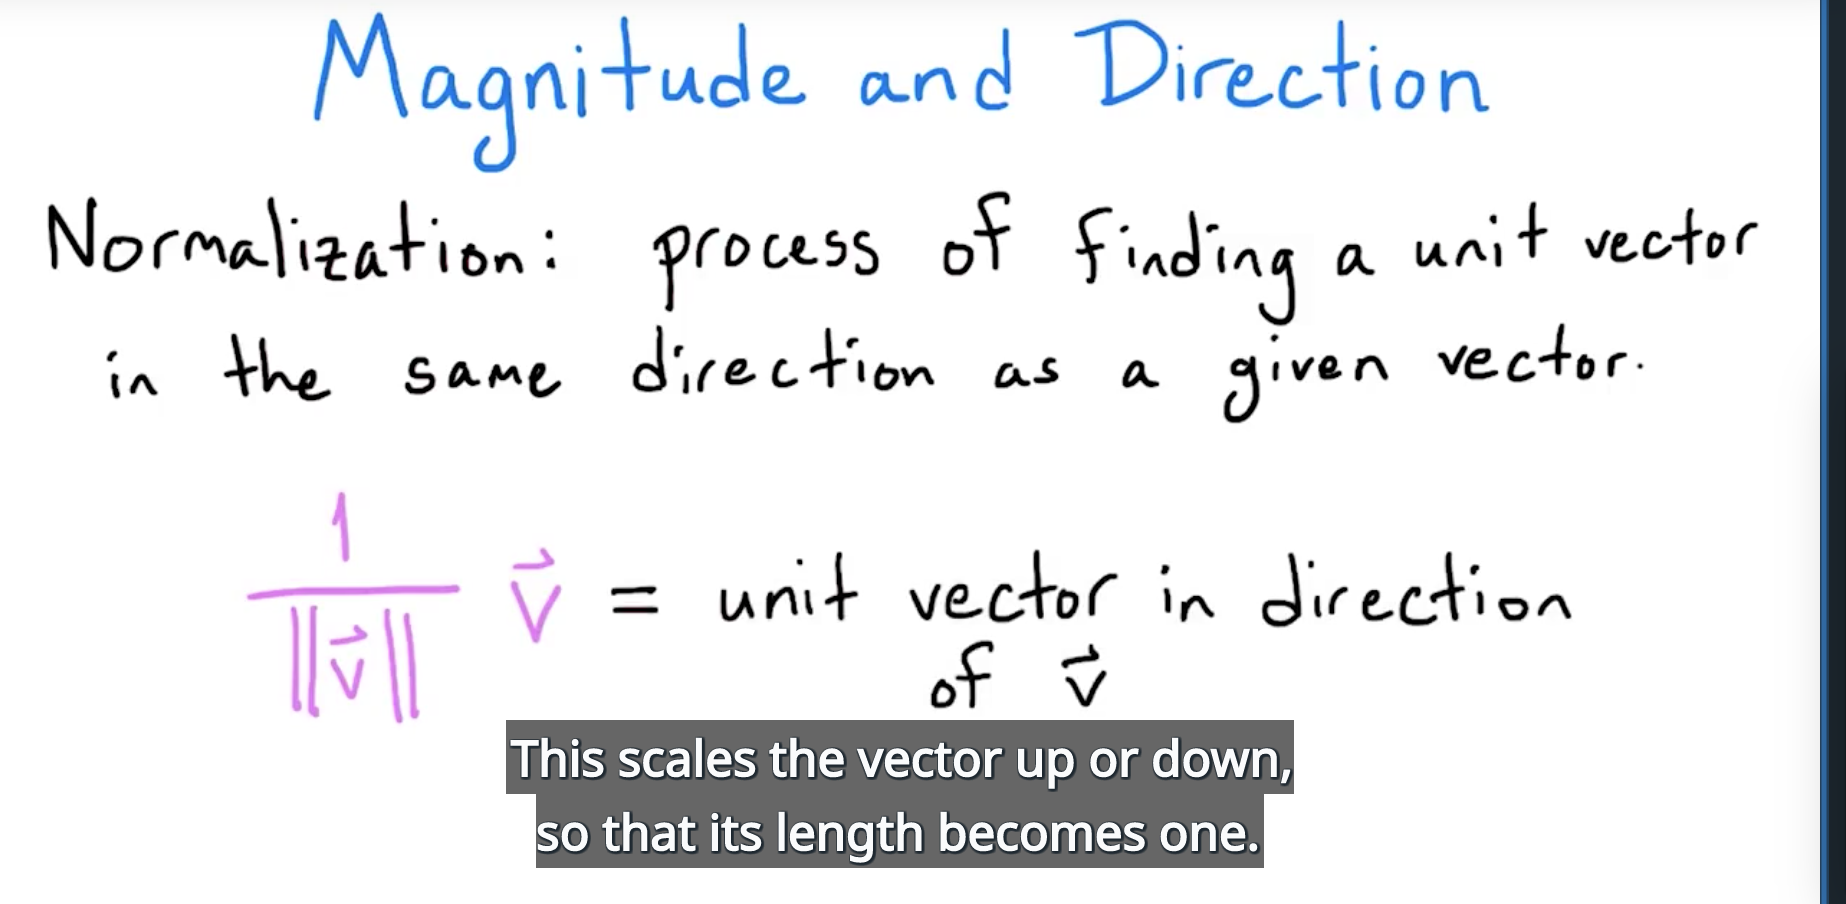 Magnitude and Direction
Normalization: process of finding a unit vector
in the same direction as a given vector.
1
‖v⃗‖ v⃗ = unit vector in direction
of v⃗
This scales the vector up or down,
so that its length becomes one.